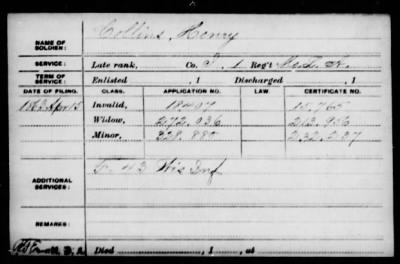 NAME OF SOLDIER: Collins, Henry
SERVICE: Late rank, Co. I, 1 Reg't
TERM OF SERVICE: Enlisted , 1 Discharged , 1
DATE OF FILING. CLASS. APPLICATION NO. LAW. CERTIFICATE NO.
1863 Apr 15 Invalid, 18407 15.765
Widow, 272.936 213.936
Minor, 328.880 232.237
ADDITIONAL SERVICES: 43 Wis Inf
REMARKS:
Died , 1 , at